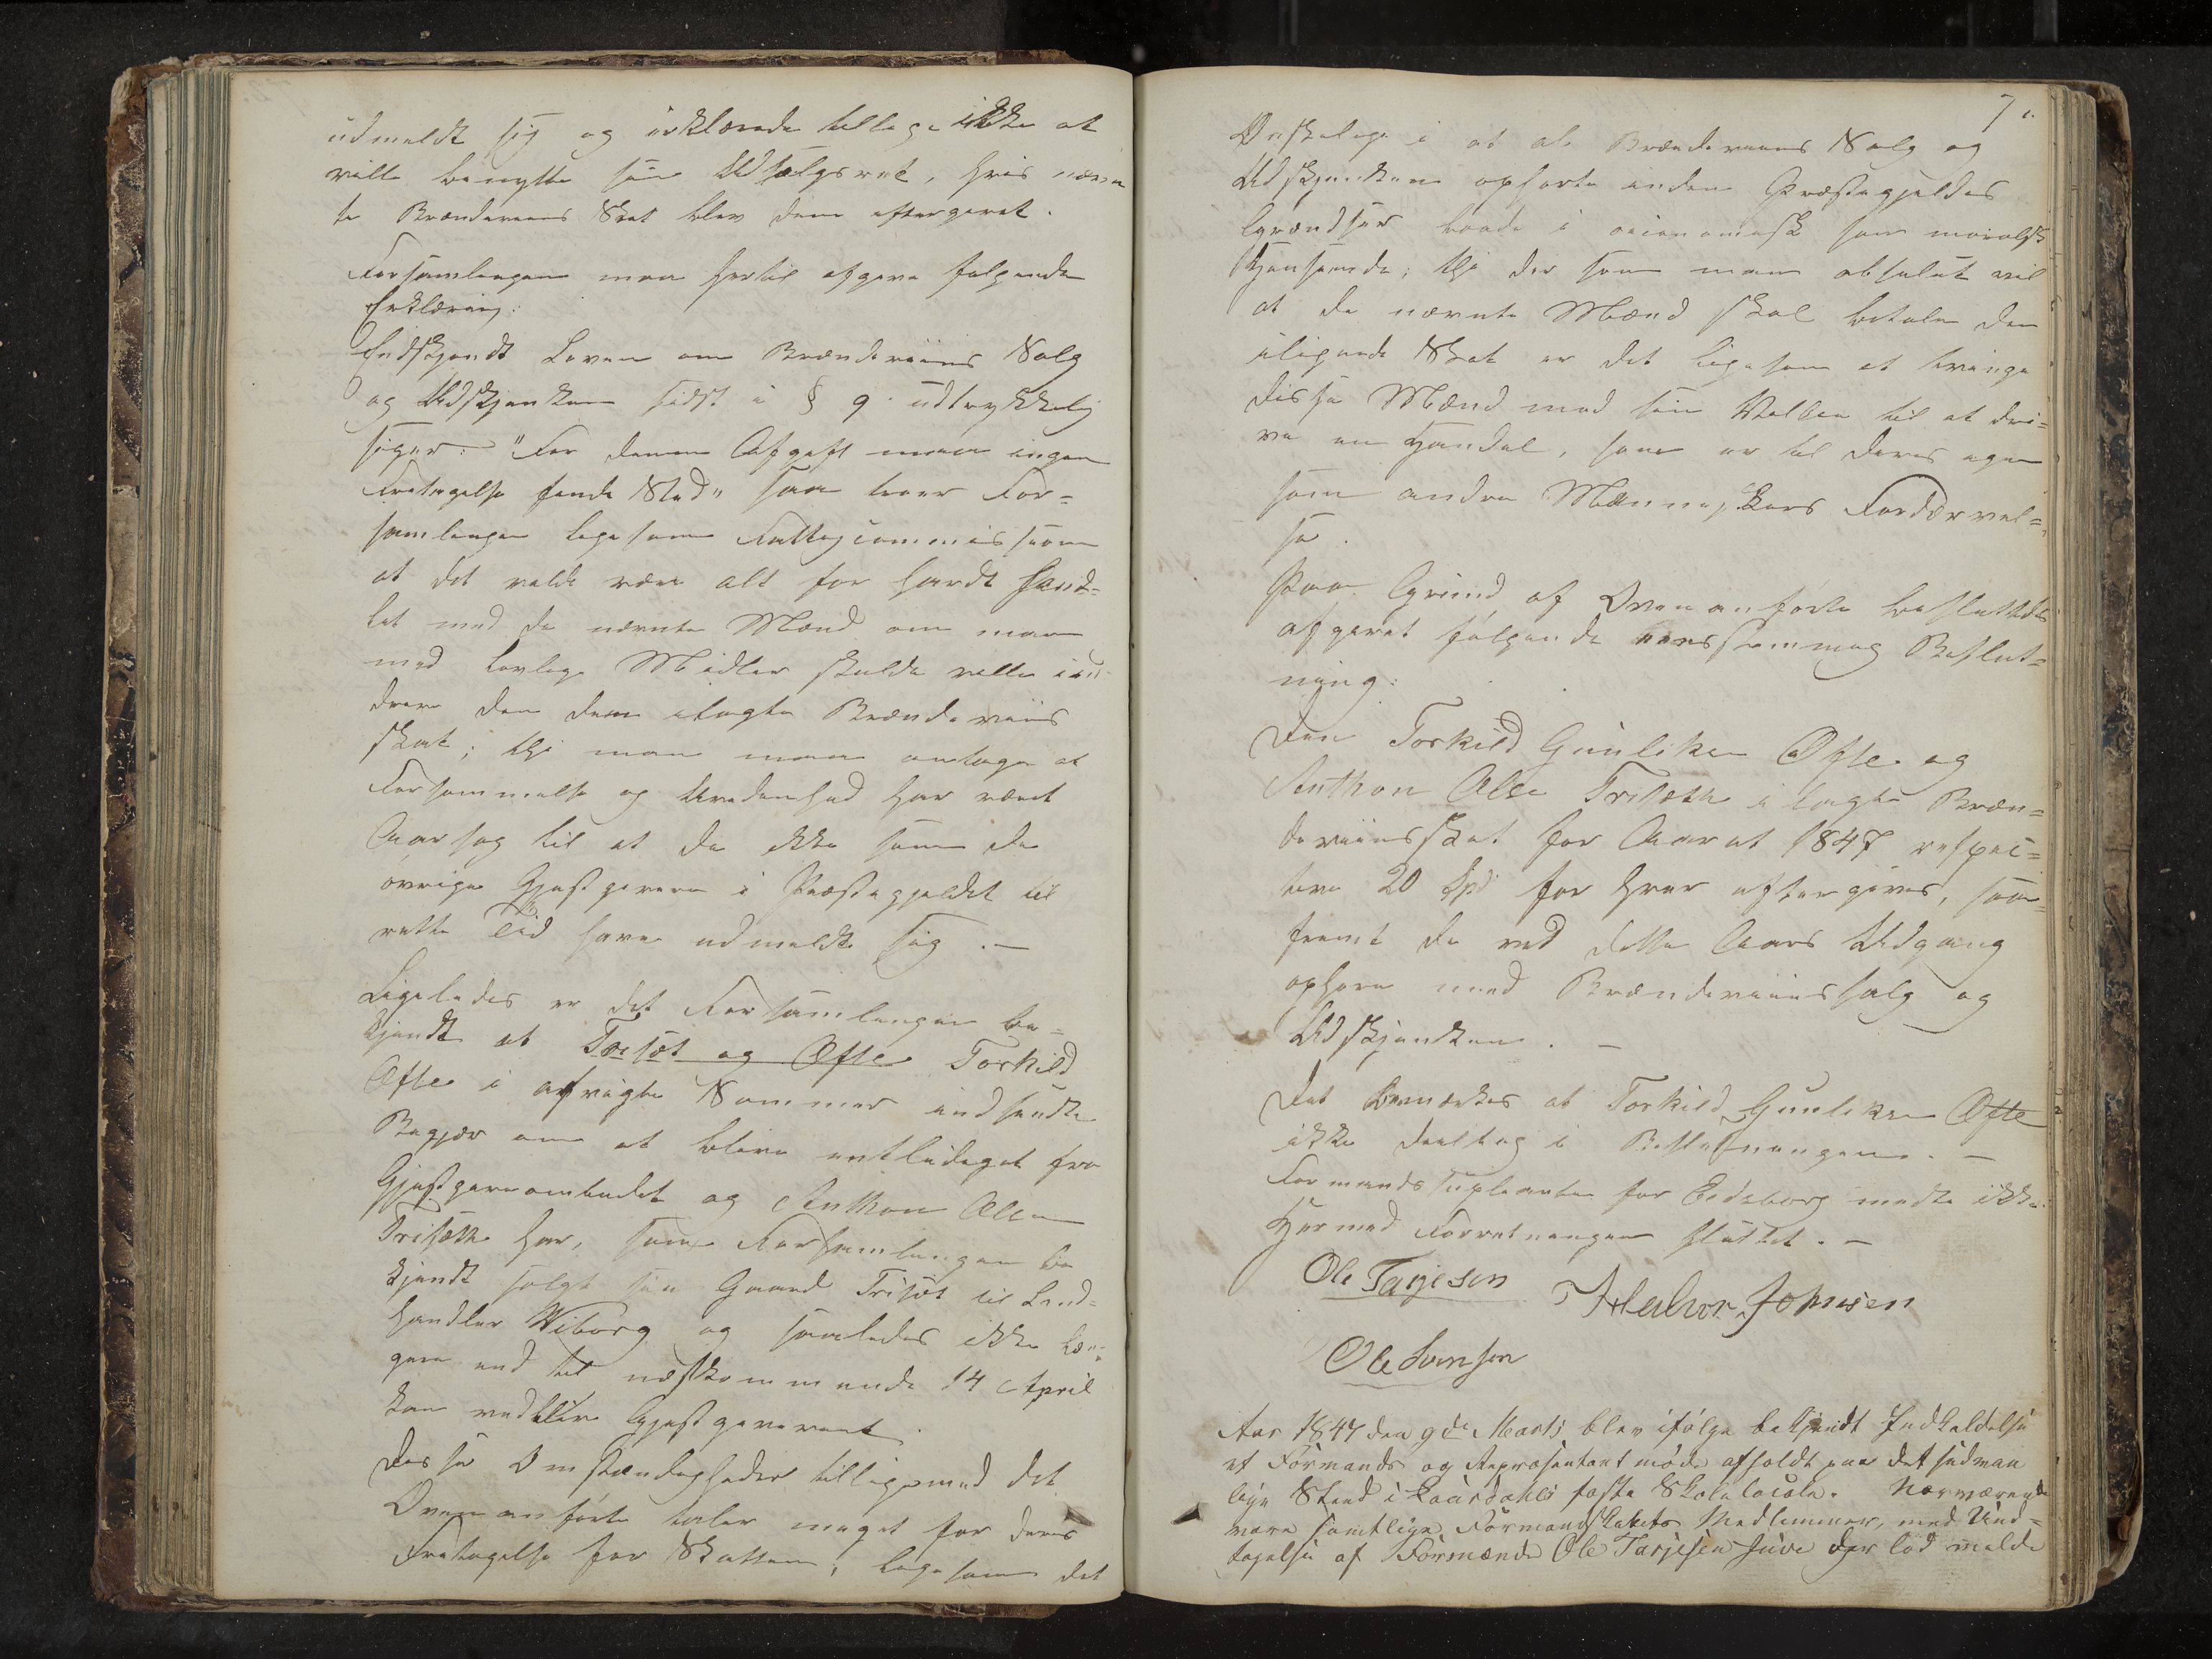 udmeldt sig og erklærede tillige ikke at
ville benytte sin Udsalgsret, hvis nævn
te Brændeviins Skat blev dem eftergivet.
Forsamlingen maa hertil afgive følgende
Erklæring:
Endskjøndt Loven om Brændeviins Salg
og Udskjænken sidst i § 9 udtrykkelig
siger: "For denne Afgift maa ingen
Fritagelse finde Sted" saa troer For=
samlingen ligesom Fattigcommissionen
at det vilde være alt for hardt hand=
let med de nævnte Mænd om man
med lovlige Midler skulde ville ind
drive den dem ilagte Brændeviins
skat; thi man maa antage at
Forsømmelse og Uvidenhed har været
Aarsag til at de ikke som de
øvrige Gjæstgivere i Præstegjeldet til
rette Tid have udmeldt sig. —
Ligeledes er det Forsamlingen be=
kjendt at Trisæt og Ofte Torkild
Ofte i afvigte Sommer indsendte
Begjær om at blive entlediget fra
Gjæstgiverombudet og Anthon Olsen
Trisæth har, som Forsamlingen be
kjendt solgt sin Gaard Trisæt til Land=
handler Wiborg og saaledes ikke læn=
gere end til næstkommende 14 April
kan vedblive Gjæstgiveriet.
Disse Omstændigheder tilligemed det
Ovenanførte taler meget for deres
Fritagelse for Skatten; ligesom det
7
Ønskelige i at al Brændeviins Salg og
Udskjænken ophørte inden Præstegjeldes
Grændser baade i oeconomisk som moralsk
Henseende; thi der som man absolut vil
at de nævnte Mænd skal betale den
ilignede Skat er det ligesom at tvinge
disse Mænd mod sin Villie til at dri=
ve en Handel, som er til deres egen
som andre Menneskers Fordærvel=
se.
Paa Grund af Ovenanførte besluttedes
afgivet følgende eensstemmig Beslut=
ning:
Den Torkild Gunliksen Ofte og
Anthon Olsen Trisæth ilagte Bræn=
deviinsskat for Aaret 1847 respec=
tive 20 Spd for hver eftergives, saa=
fremt de ved dette Aars Udgang
ophøre med Brændeviinssalg og
Udskjænken. —
Det bemærkes at Torkild Gunliksen Ofte
ikke deeltog i Beslutningen. —
Formandssupleanten for Eidsborg mødte ikke.
Hermed Forretningen sluttet. —
Ole Tarjesen Halvor Johnsen
Ole Svensen
Aar 1847 den 9de Marts blev ifølge bekjendt Indkaldelse
et Formands og Repræsentantmøde afholdt paa det sædvan
lige Sted i Laurdahls faste Skolelocale. Nærværende
vare samtlige Formandskabets Medlemmer, med Und=
tagelse af Formænd Ole Tarjesen Juve der lod melde